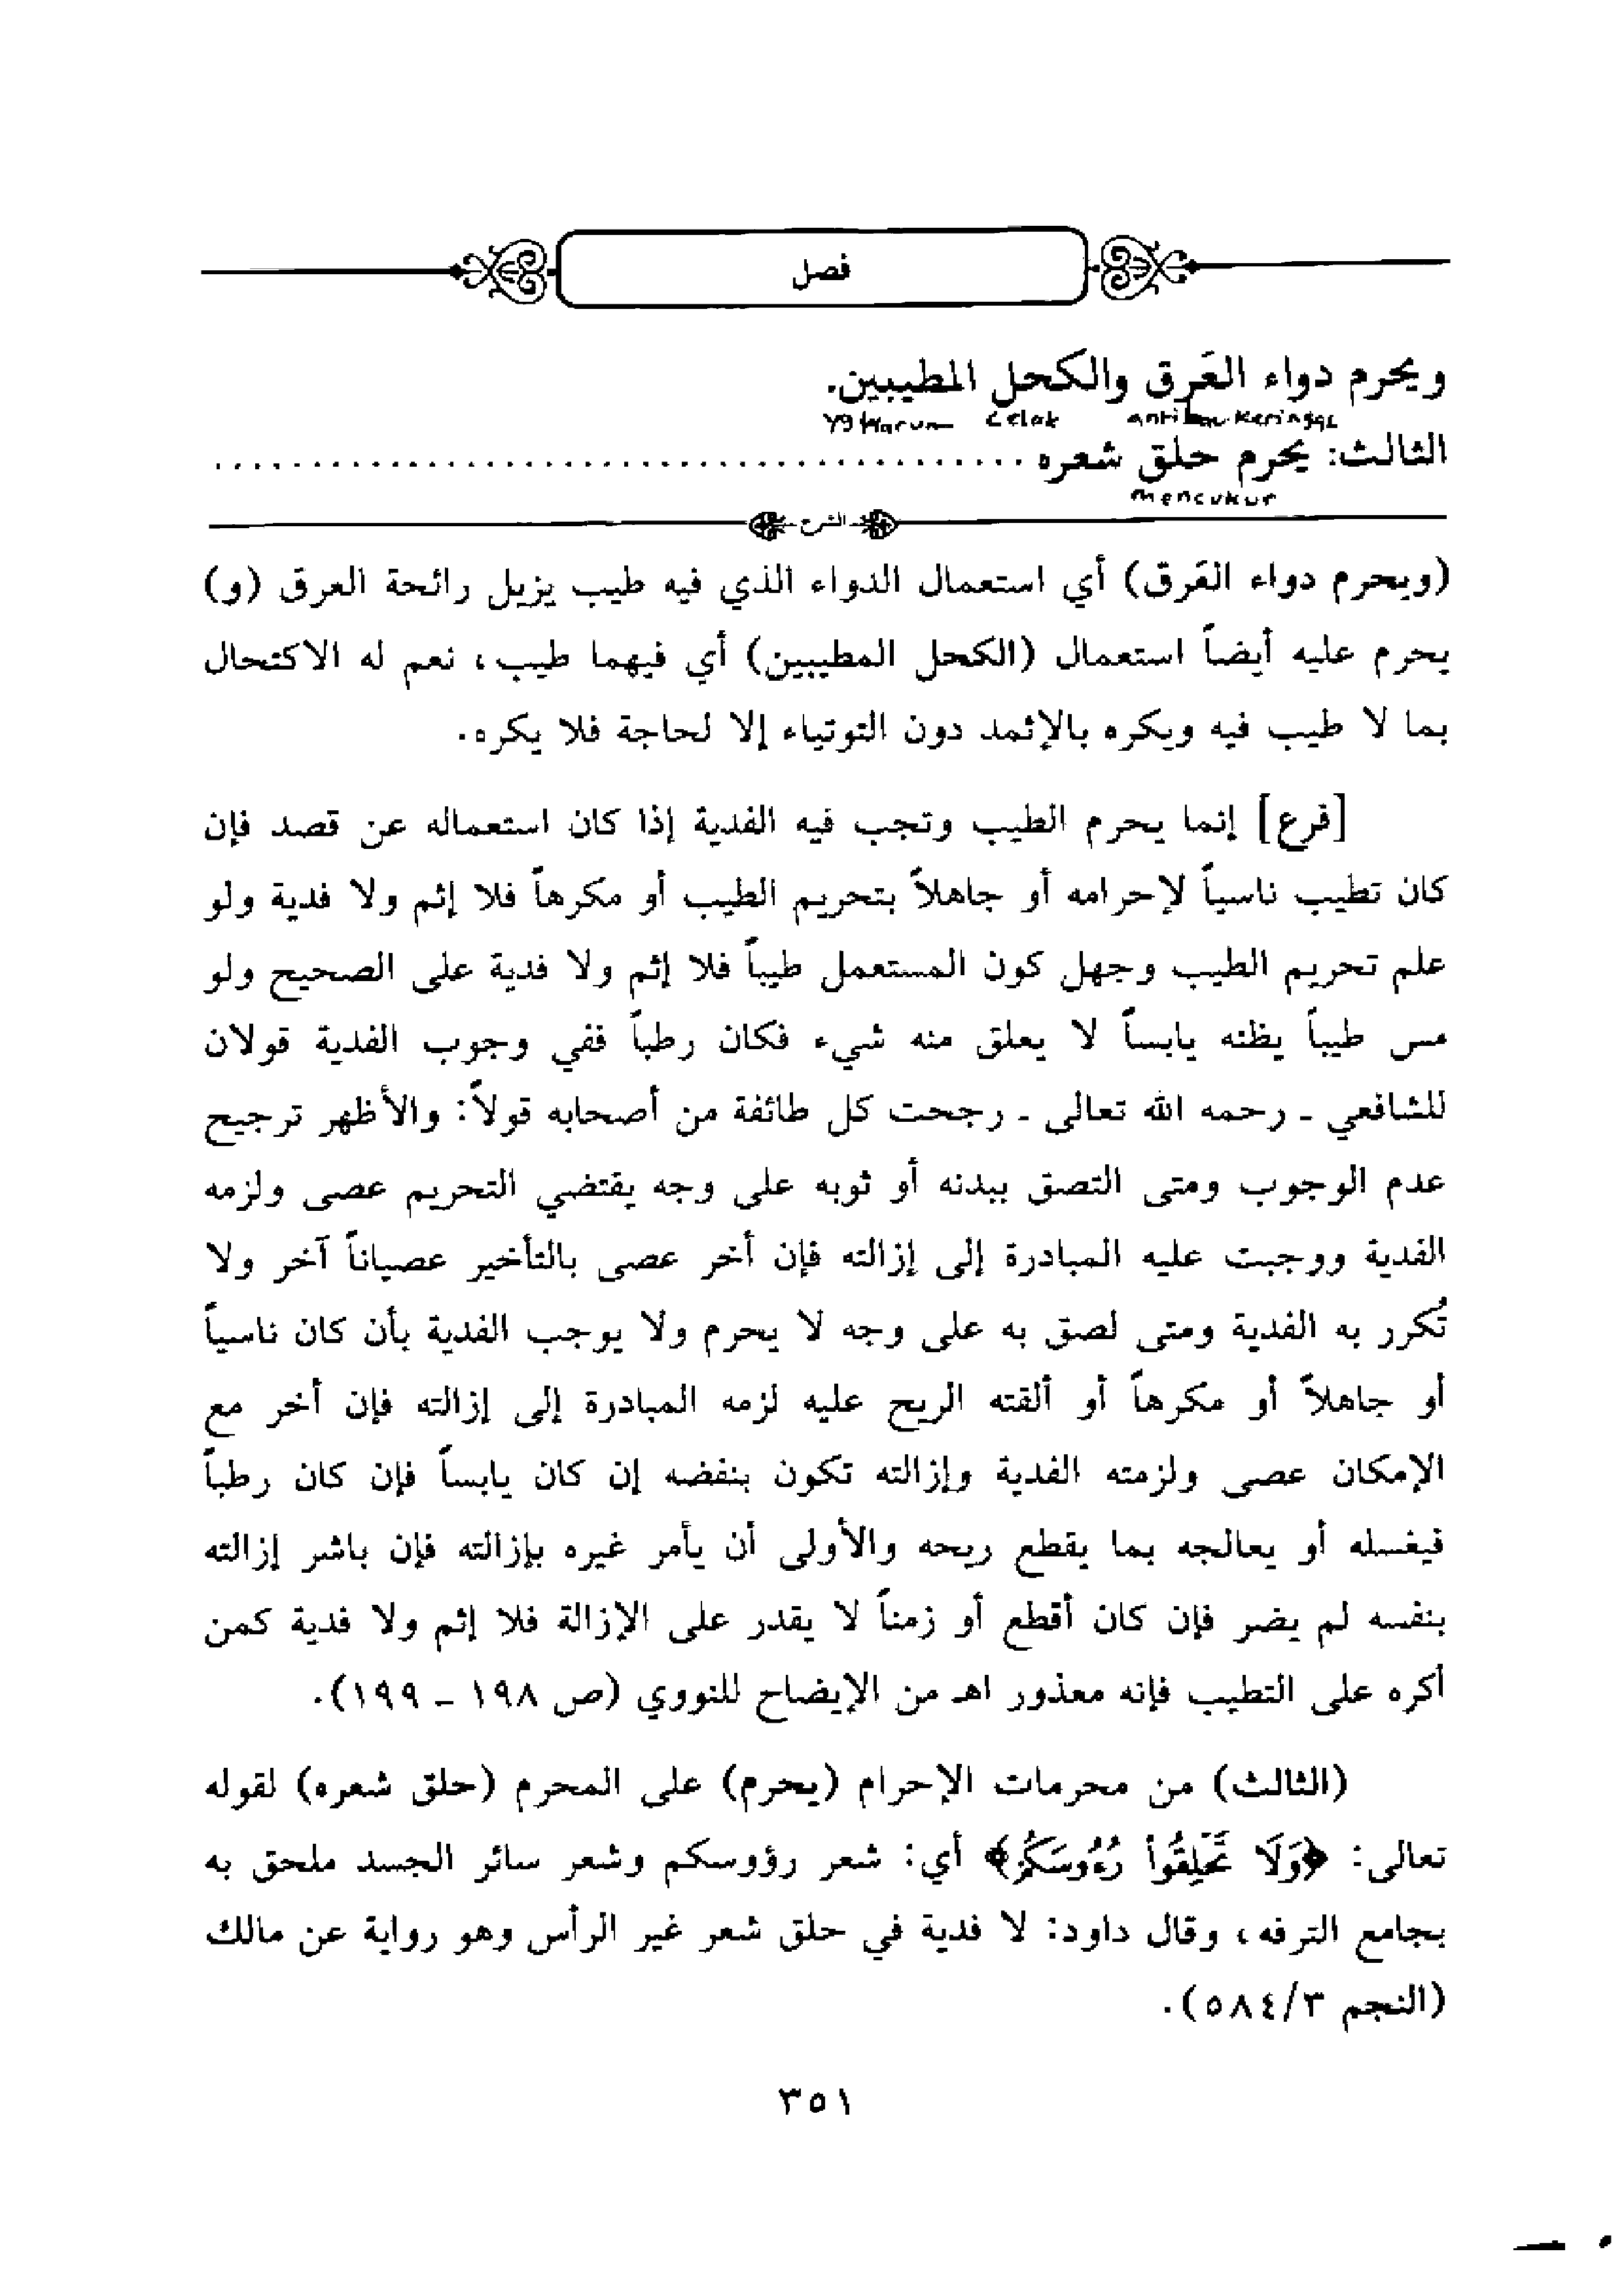 فصل
ويحرم دواء العَرق والكحل المطيبين.
yg Harum Celak anti bau keringat
الثالث: يحرم حلق شعره ........................................
mencukur
الشرح
(ويحرم دواء العَرق) أي استعمال الدواء الذي فيه طيب يزيل رائحة العرق (و)
يحرم عليه أيضاً استعمال (الكحل المطيبين) أي فيهما طيب، نعم له الاكتحال
بما لا طيب فيه ويكره بالإثمد دون التوتياء إلا لحاجة فلا يكره.
[فرع] إنما يحرم الطيب وتجب فيه الفدية إذا كان استعماله عن قصد فإن
كان تطيب ناسياً لإحرامه أو جاهلاً بتحريم الطيب أو مكرهاً فلا إثم ولا فدية ولو
علم تحريم الطيب وجهل كون المستعمل طيباً فلا إثم ولا فدية على الصحيح ولو
مس طيباً يظنه يابساً لا يعلق منه شيء فكان رطباً ففي وجوب الفدية قولان
للشافعي - رحمه الله تعالى - رجحت كل طائفة من أصحابه قولاً: والأظهر ترجيح
عدم الوجوب ومتى التصق ببدنه أو ثوبه على وجه يقتضي التحريم عصى ولزمه
الفدية ووجبت عليه المبادرة إلى إزالته فإن أخر عصى بالتأخير عصياناً آخر ولا
تُكرر به الفدية ومتى لصق به على وجه لا يحرم ولا يوجب الفدية بأن كان ناسياً
أو جاهلاً أو مكرهاً أو ألقته الريح عليه لزمه المبادرة إلى إزالته فإن أخر مع
الإمكان عصى ولزمته الفدية وإزالته تكون بنفضه إن كان يابساً فإن كان رطباً
فيغسله أو يعالجه بما يقطع ريحه والأولى أن يأمر غيره بإزالته فإن باشر إزالته
بنفسه لم يضر فإن كان أقطع أو زمناً لا يقدر على الإزالة فلا إثم ولا فدية كمن
أكره على التطيب فإنه معذور اهـ من الإيضاح للنووي (ص ١٩٨ - ١٩٩).
(الثالث) من محرمات الإحرام (يحرم) على المحرم (حلق شعره) لقوله
تعالى: ﴿وَلَا تَحْلِقُوا رُءُوسَكُمْ﴾ أي: شعر رؤوسكم وشعر سائر الجسد ملحق به
بجامع الترفه، وقال داود: لا فدية في حلق شعر غير الرأس وهو رواية عن مالك
(النجم ٣/٥٨٤).
٣٥١